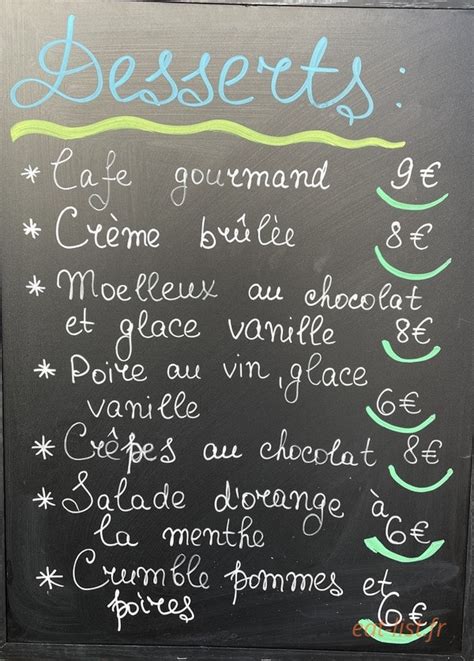 Desserts :
* Cafe gourmand 9€
* Crème brûlée 8€
* Moelleux au chocolat
et glace vanille 8€
* Poire au vin, glace
vanille 6€
* Crêpes au chocolat 8€
* Salade d'orange à
la menthe 6€
* Crumble pommes et
poires 6€
eat-list.fr